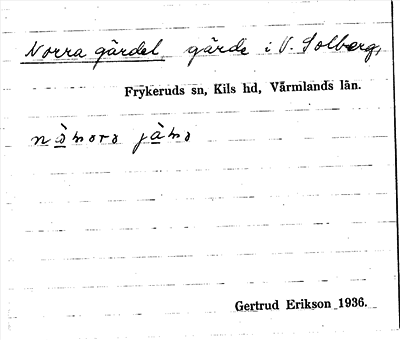 Norra gärdet, gärde i V. Solberg,
Frykeruds sn, Kils hd, Värmlands län.
Gertrud Erikson 1936.